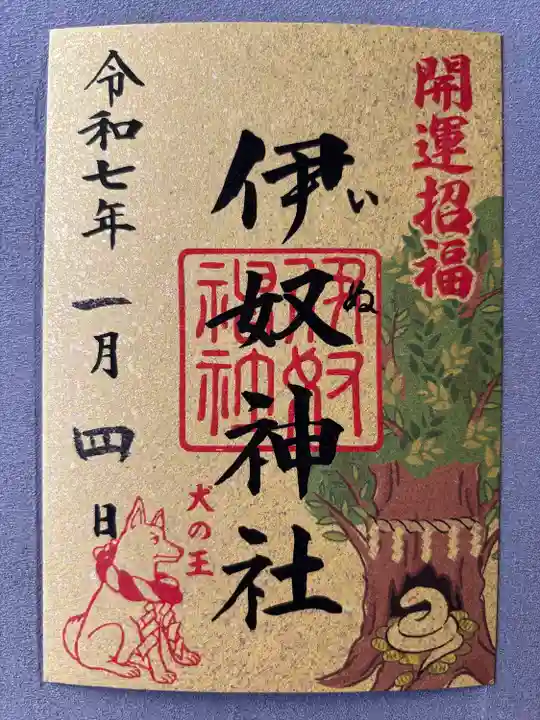 開運招福
伊奴神社
いぬ
伊奴神社
犬の王
令和七年 一月 四日